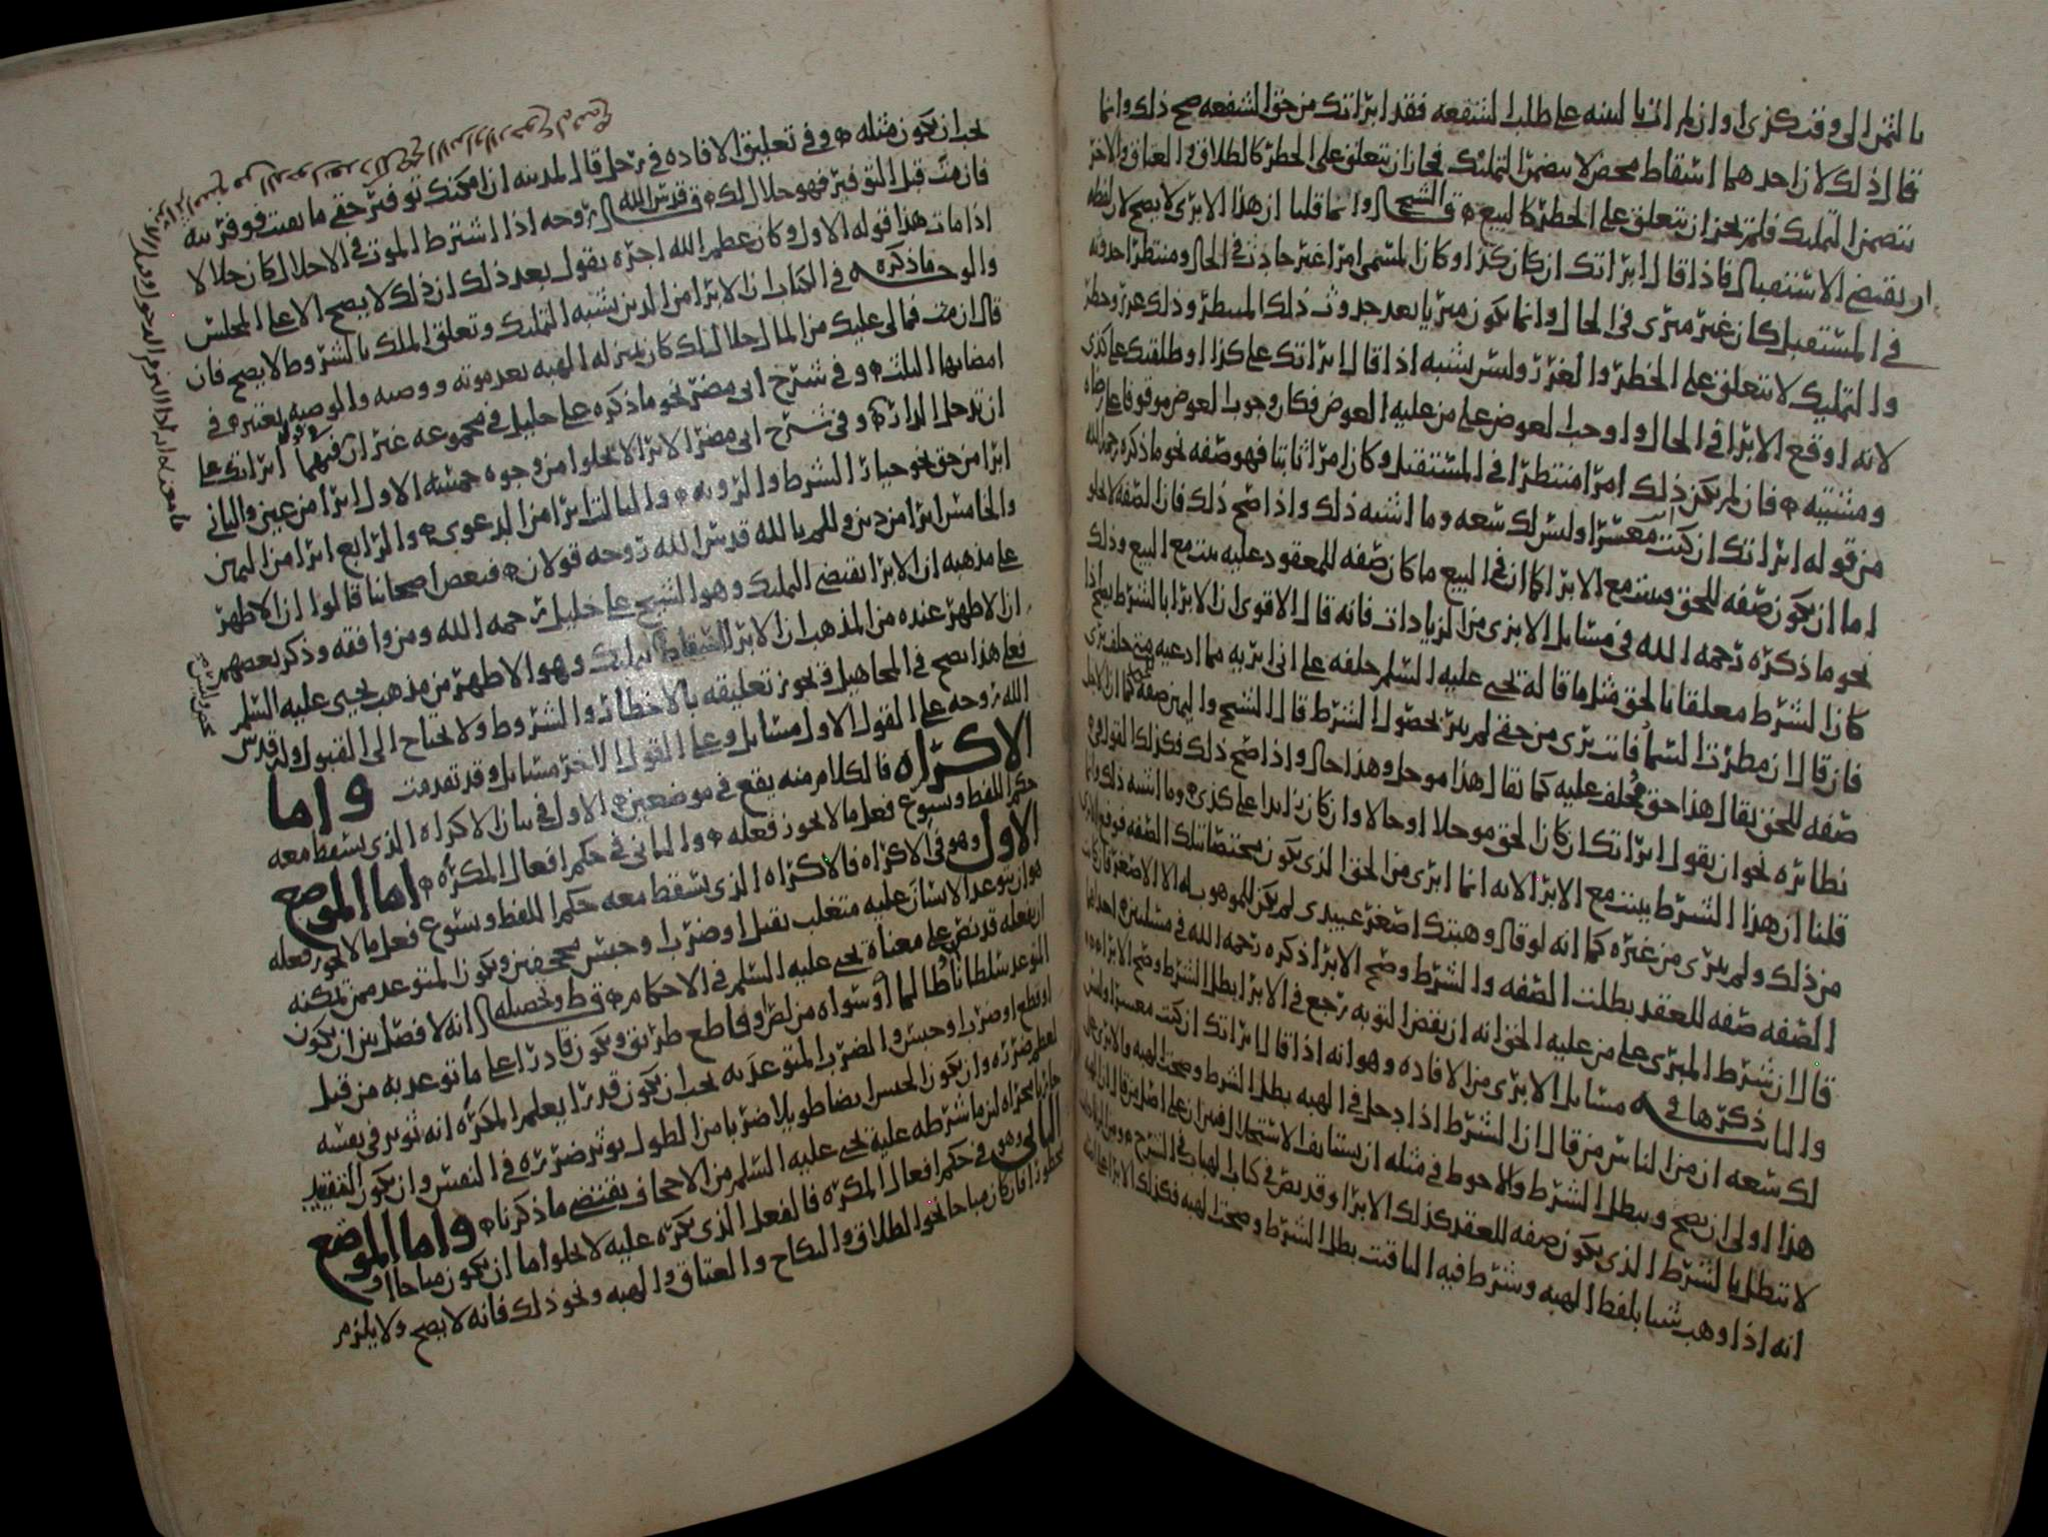 بالثمن الى وقت كذى او ان لم اتك بالبينه على طلب الشفعه فقد ابراتك من حق الشفعه صح ذلك وانما
قلنا ذلك لان احدهما اسقاط محض لا يتضمن التمليك فجاز ان يتعلق على الخطر كالطلاق والعتاق والاخر
يتضمن التمليك فلم يجز ان يتعلق على الخطر كالبيع قال الشيخ وانما قلنا ان هذا الابرى لا يصح لان لفظه
ان يقتضي الاستقبال فاذا قال ابراتك ان كان كذا وكان المسمى امرا غير حادث في الحال ومنتظرا حدوثه
في المستقبل كان غير مبرى في الحال وانما يكون مبريا بعد حدوث ذلك المنتظر وذلك غرر وخطر
والتمليك لا يتعلق على الخطر والغرر وليس يشبه اذا قال ابراتك على كذا او طلقتك على كذى
لانه اوقع الابرا في الحال واوجب العوض على من عليه العوض فكان وجوب العوض موقوفا على رضاه
ومشيته فان لم يكن ذلك امرا منتظرا في المستقبل وكان امرا ثابتا فهو صفه نحو ما ذكره رحمه الله
من قوله ابراتك ان كنت معسرا وليس لك سعه وما اشبه ذلك واذا صح ذلك فان الصفه لا تخلو
اما ان يكون صفه للحق يثبت مع الابرا كما ان في البيع ما كان صفه للمعقود عليه يثبت مع البيع وذلك
نحو ما ذكره رحمه الله في مسايل الابرى من الزيادات فانه قال الاقوى ان الابرا بالشرط يصح اذا
كان الشرط معلقا بالحق مثل ما قاله يحيى عليه السلم حلفه على اني ابريه مما ادعيه فمتى حلف برى
فان قال ان مطرت السما فانت برى من حقي لم يبر بحصول الشرط قال الشيخ واليمين صفه كما ان الاجل
صفه للحق يقال هذا حق محلف عليه كما يقال هذا موجل وهذا حال واذا صح ذلك فكذلك القول في
نظائره نحو ان يقول ابراتك ان كان الحق موجلا او حالا وان كان زايدا على كذى وما اشبه ذلك وانما
قلنا ان هذا الشرط يثبت مع الابرا لانه انما ابرى من الحق الذي يكون مختصا بتلك الصفه فوقع البرى
من ذلك ولم يبرى من غيره كما انه لو قال وهبتك اصغر عبيدى لم يكن للموهوب له الا الاصغر فان كانت
الصفه صفه للعقد بطلت الصفه والشرط وصح الابرا ذكره رحمه الله في مسلتين احداهما
قال ان شرط المبرى على من عليه الحق انه ان نقض التوبه رجع في الابرا بطل الشرط وصح الابراء
والثانيه ذكرها في مسايل الابرى من الافاده وهو انه اذا قال ابراتك ان كنت معسرا وليس
لك سعه ان من الناس من قال ان الشرط اذا دخل في الهبه بطل الشرط وصحت الهبه والابرى على
هذا اولى ان يصح ويبطل الشرط والاحوط في مثله ان يستانف الاستحلال فبين ان على اصل من قال ان الهبه
لا تبطل بالشرط الذي يكون صفه للعقد كذلك الابرا وقد نص في كتاب الهبات في الشرح
انه اذا وهب شيا بلفظ الهبه وشرط فيه التاقيت بطل الشرط وصحت الهبه فكذلك الابرا
يجب ان يكون مثله وفي تعليق الافاده في رجل قال لمدينه ان امكنك توفير حقي ما بقيت فوفرته
فان مت قبل التوفير فهو حلال لك قال قدس الله روحه اذا اشترط الموت في الاحلال كان حلالا
اذا مات هذا قوله الاول وكان عظم الله اجره يقول بعد ذلك ان ذلك لا يصح الا على المجلس
والوجه ما ذكره في الكتاب ان الابرا من الدين يشبه التمليك وتعلق الملك بالشروط لا يصح فان
قال ان مت فما لي عليك من المال حلال لك كان بمنزله الهبه بعد موته ووصيه والموصيه يعتبر في
امضايها الثلث وفي شرح ابي مضر نحو ما ذكره علي خليل في مجموعه غير ان فيهما ابراتك على
ان تدخل الدار وفي شرح ابي مضر الابرا لا يخلوا من وجوه خمسه الاول ابرا من عين والثاني
ابرا من حق نحو خيار الشرط والرويه والثالث ابرا من الدعوى والرابع ابرا من اليمين
والخامس ابرا من دين وللمويد بالله قدس الله روحه قولان فبعض اصحابنا قالوا ان الاظهر
على مذهبه ان الابرا يقتضي التمليك وهو الشيخ علي خليل رحمه الله ومن وافقه وذكر بعضهم
ان الاظهر عنده من المذهب ان الابرا اسقاط لا تمليك وهو الاظهر من مذهب يحيى عليه السلم
فعلى هذا يصح في المجاهيل ويجوز تعليقه بالاخطار والشروط ولا يحتاج الى القبول وله قدس
الله روحه على القول الاول مسايل وعلى القول الاخر مسايل وقد تقدمت واما
الاكراه فالكلام منه يقع في موضعين الاول في بيان الاكراه الذي يسقط معه
حكم اللفظ ويسوغ فعل ما لا يجوز فعله والثاني في حكم افعال المكره اما الموضع
الاول وهو في الاكراه فالاكراه الذي يسقط معه حكم اللفظ ويسوغ فعل ما لا يجوز فعله
هو ان يتوعد الانسان عليه متغلب بقتل او ضرب او حبس مجحفين ويكون المتوعد ممن يمكنه
ان يفعله قد نص على معناه يحيى عليه السلم في الاحكام قال ط وتحصيله انه لا فصل بين ان يكون
المتوعد سلطانا ظالما او سواه من لص او قاطع طريق ويكون قادرا على ما توعد به من قتل
او قطع او ضرب او حبس والضرب المتوعد به يجب ان يكون قدرا يعلم المكره انه توثر في نفسه
لعظم ضرره وان يكون الحبس ايضا طويلا ضربا من الطول يوثر ضرره في النفس وان يكون التقييد
جاريا مجراه لان ما شرطه عليه يحيى عليه السلم من الاجحاف يقتضي ما ذكرناه واما الموضع
الثاني وهو في حكم افعال المكره فالفعل الذي يكره عليه لا يخلوا اما ان يكون مباحا او
محظورا فان كان مباحا نحو الطلاق والنكاح والعتاق والهبه ونحو ذلك فانه لا يصح ولا يلزم